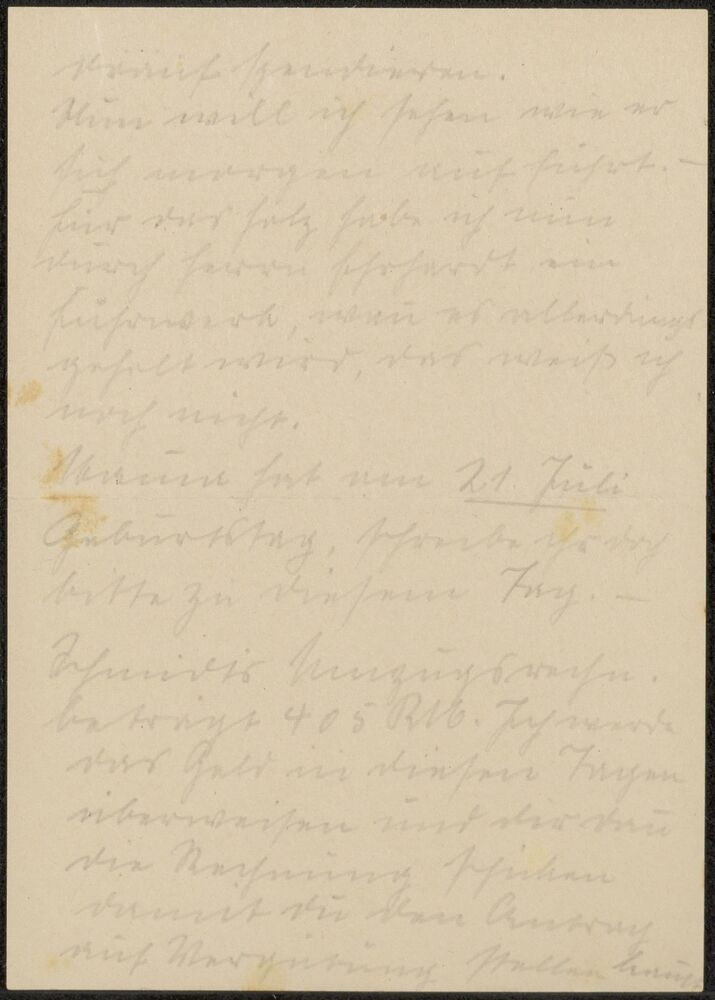 drauf spendieren.
Nun will ich sehen wie er
sich morgen auf führt. –
Für das Holz habe ich nun
durch Herrn Ehrhardt ein
Fuhrwerk, wan es allerdings
geholt wird, das weiß ich
noch nicht.
Mama hat am 21. Juli
Geburtstag, schreibe ihr doch
bitte zu diesem Tag. –
Schmidts Umzugsrechn.
beträgt 405 RM. Ich werde
das Geld in diesen Tagen
überweisen und dir dan
die Rechnung schicken
damit du den Antrag
auf Vergütung stellen kanst